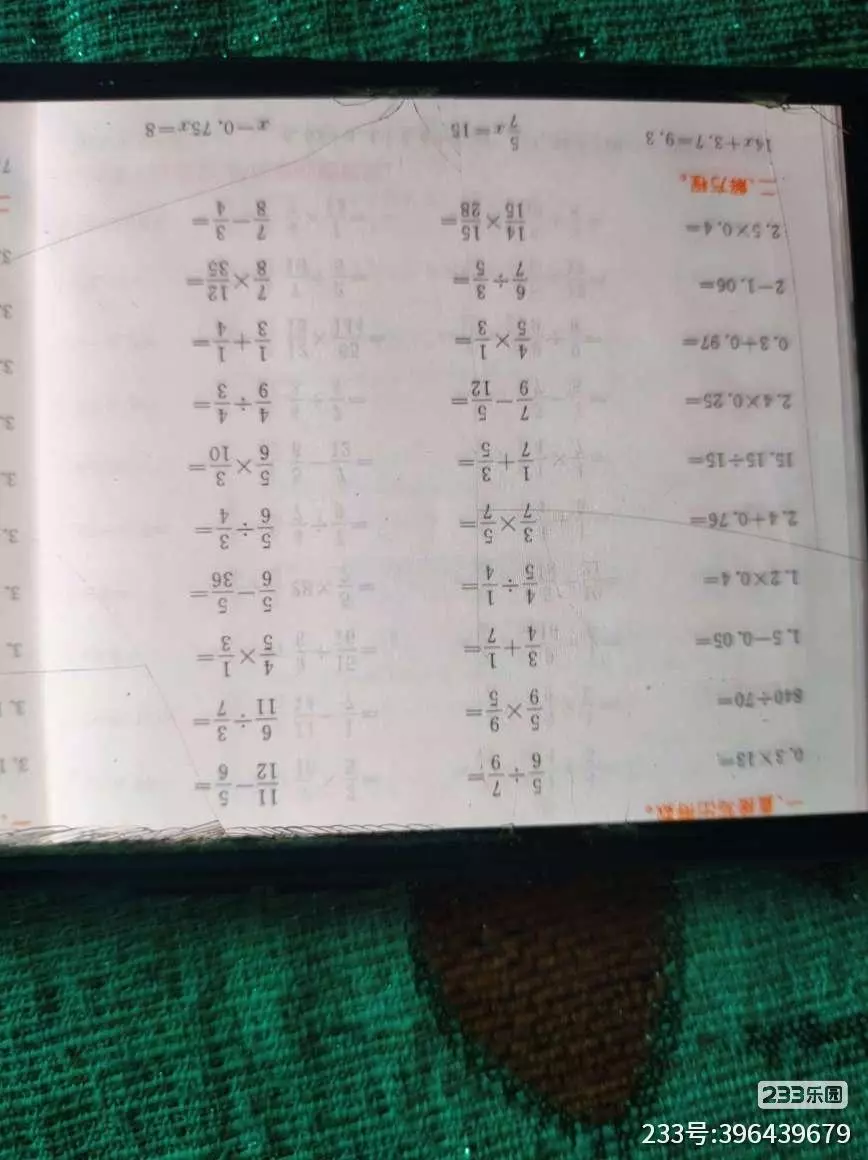 一、直接写出得数。
0.3×13= 5/6÷7/9= 11/12−5/6=
840÷70= 5/9×9/5= 6/11÷3/7=
1.5−0.05= 3/4+1/7= 4/5×1/3=
1.2×0.4= 4/5÷1/4= 5/6−5/36=
2.4+0.76= 3/7×5/7= 5/6÷3/4=
15.15÷15= 1/7+3/5= 5/6×3/10=
2.4×0.25= 7/9−5/12= 4/9÷4/3=
0.3+0.97= 4/5×1/3= 1/3+1/4=
2−1.06= 6/7÷3/5= 7/8×12/35=
2.5×0.4= 14/15×15/28= 7/8−3/4=
二、解方程。
14x+3.7=9.3 5/7x=15 x−0.75x=8
233乐园
233号:396439679